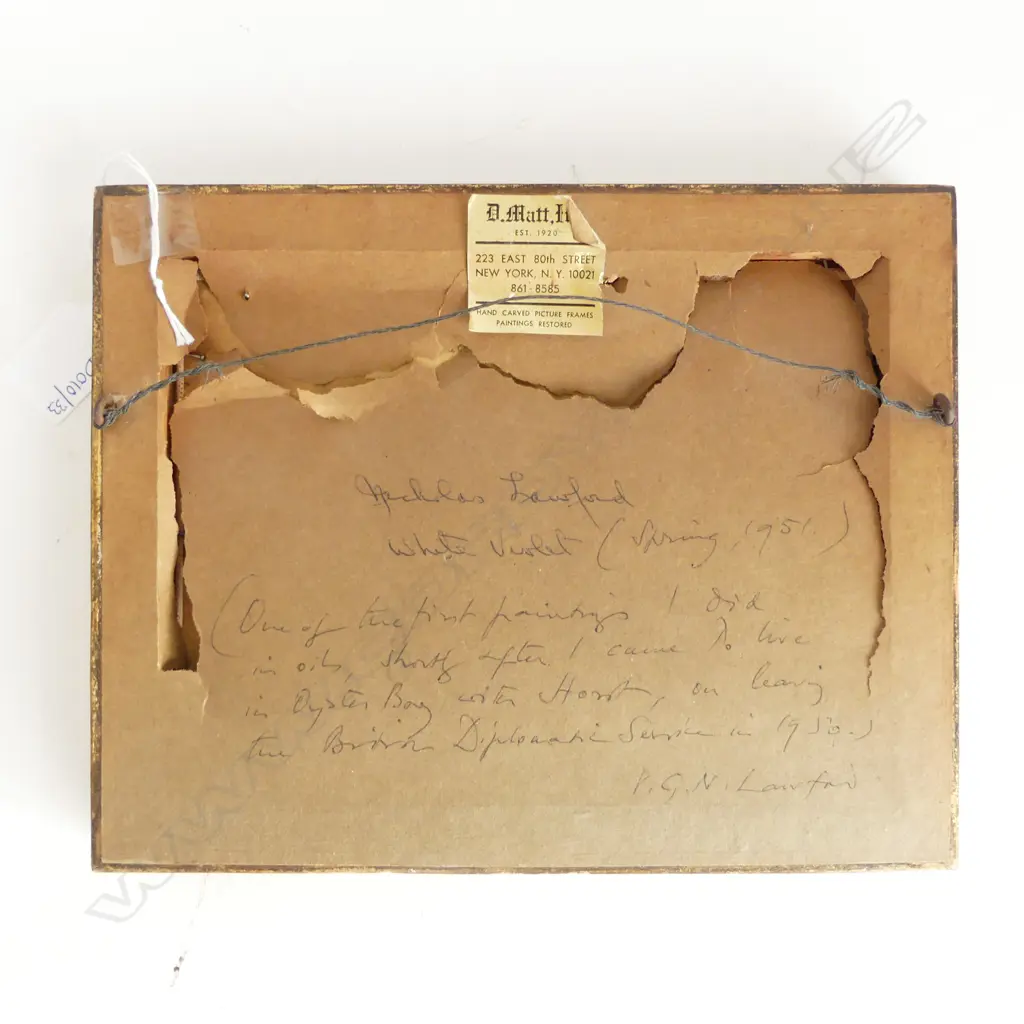 D.Matt,
EST. 1920
223 EAST 80th STREET
NEW YORK, N. Y. 10021
861-8585
HAND CARVED PICTURE FRAMES
PAINTINGS RESTORED
Nicholas Lawford
White Violet (Spring, 1951.)
(One of the first paintings I did
in oils, shortly after I came to live
in Oyster Bay with Horst, on leaving
the British Diplomatic Service in 1950.)
V.G.N. Lawford